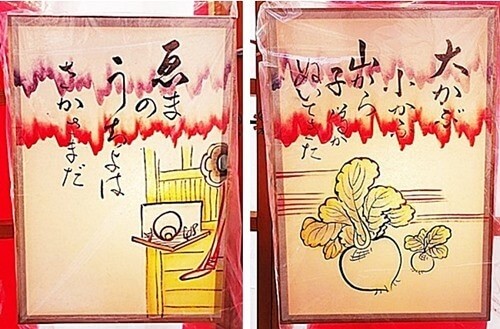 ゑま
の
うちよは
さかさまだ
大かぶ
小かぶ
山から
子僧が
ぬいてきた